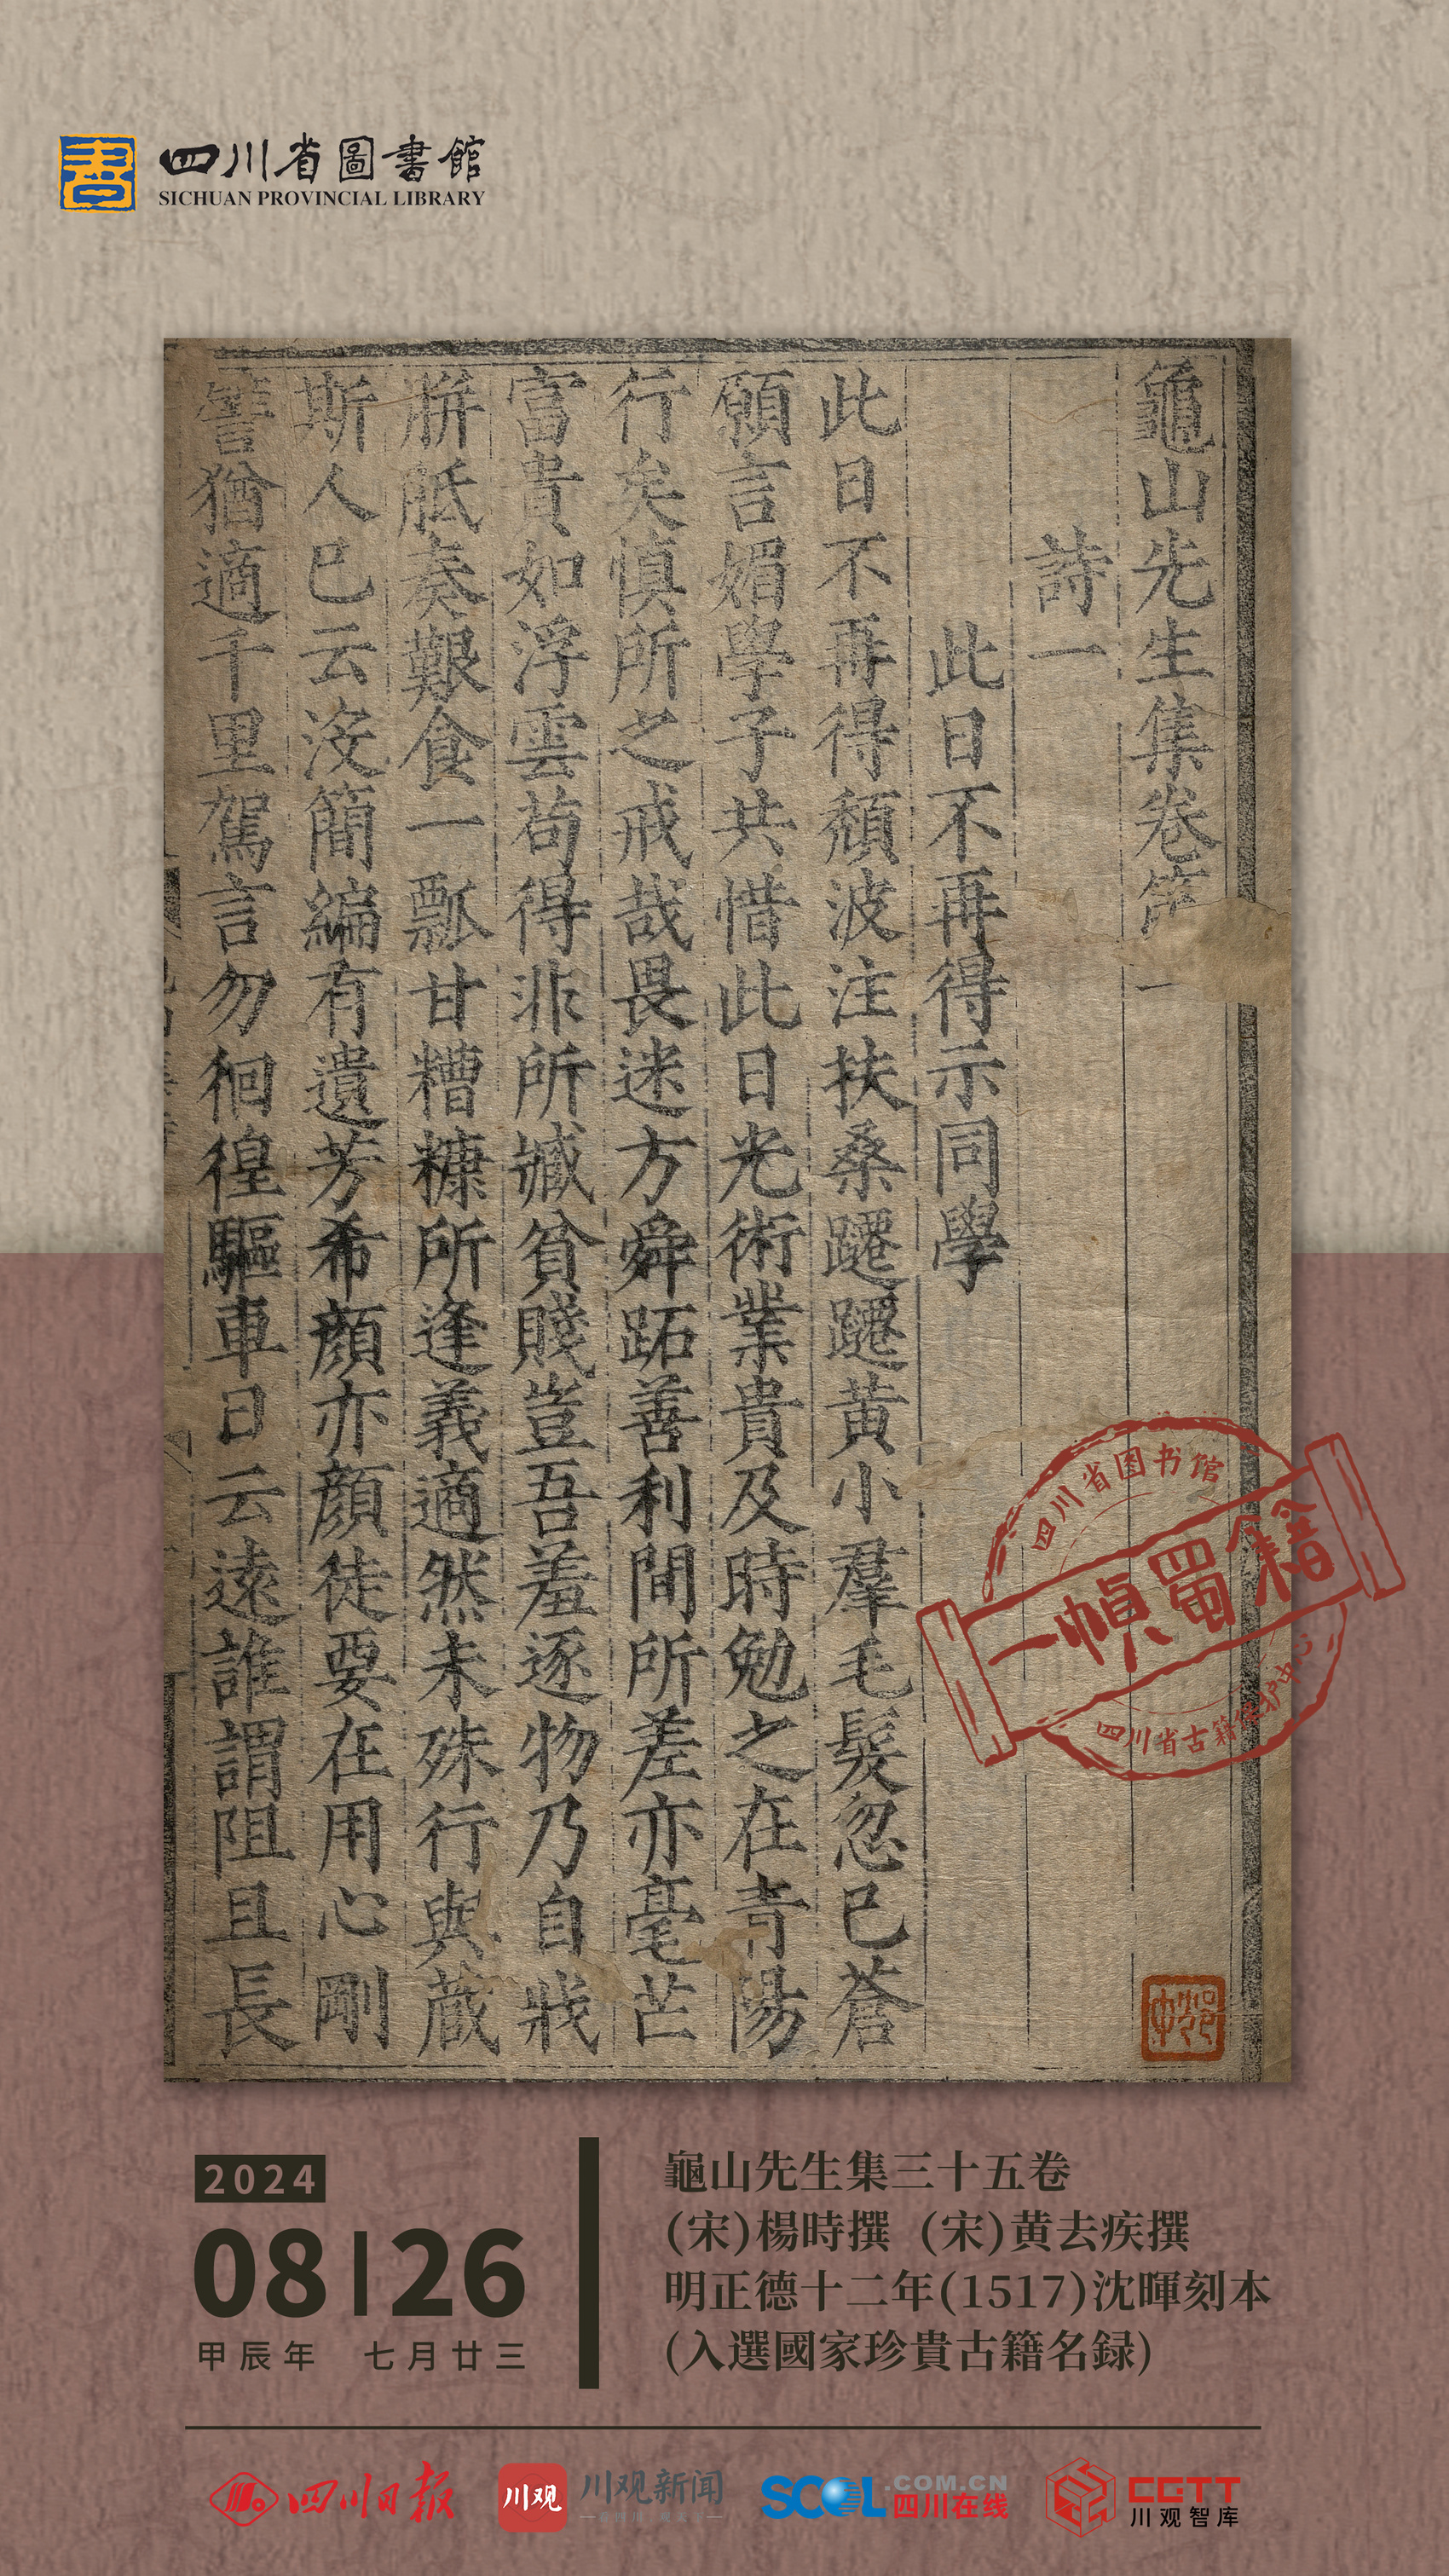 四川省圖書館
SICHUAN PROVINCIAL LIBRARY
龜山先生集卷第一
詩一
此日不再得示同學
此日不再得頹波注扶桑躚躚黃小羣毛髮忽已蒼
願言媚學子共惜此日光術業貴及時勉之在青陽
行矣慎所之戒哉畏迷方舜跖善利間所差亦毫芒
富貴如浮雲苟得非所臧貧賤豈吾羞逐物乃自戕
胼胝奏艱食一瓢甘糟糠所逢義適然未殊行與藏
斯人已云沒簡編有遺芳希顏亦顏徒要在用心剛
譬猶適千里駕言勿徊徨驅車日云遠誰謂阻且長
四川省图书馆
一幀蜀籍
四川省古籍保护中心
2024
08|26
甲辰年 七月廿三
龜山先生集三十五卷
(宋)楊時撰 (宋)黄去疾撰
明正德十二年(1517)沈暉刻本
(入選國家珍貴古籍名録)
四川日报
川观
川观新闻
SCOL.COM.CN
四川在线
CGTT
川观智库